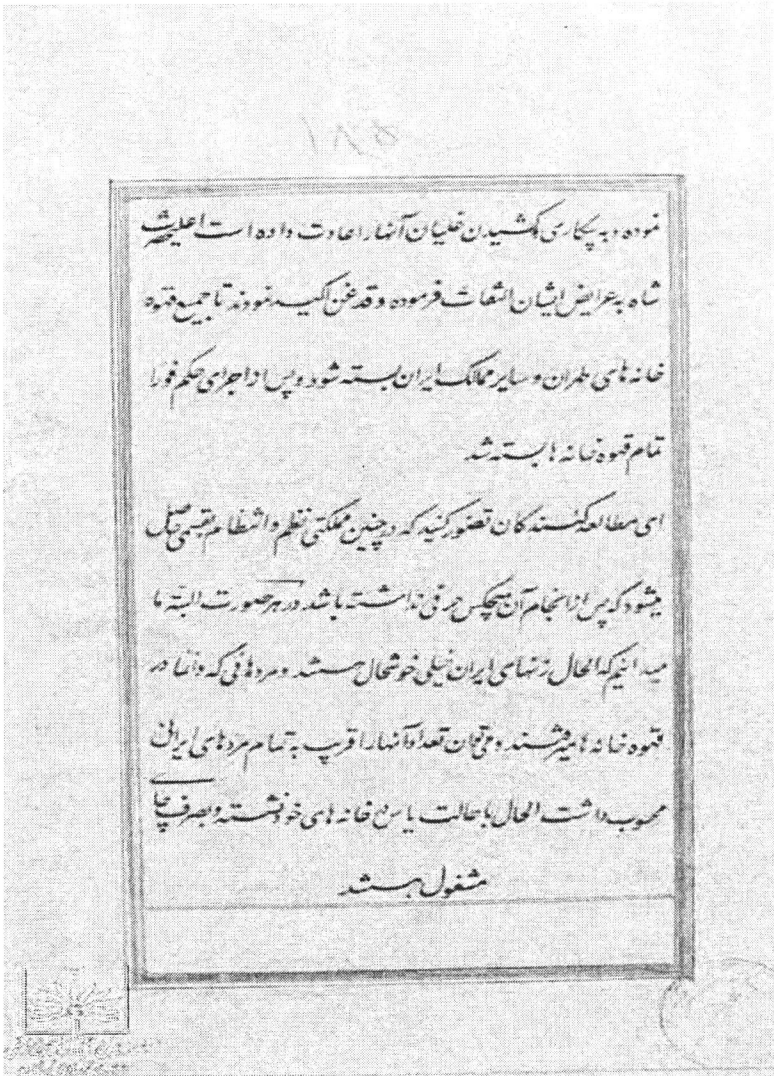 ۵۸۱
نموده و به بیکاری و کشیدن غلیان آنها را عادت داده است اعلیحضرت
شاه به عرایض ایشان التفات فرموده و قدغن اکید نمودند تا جمیع قهوه
خانه های طهران و سایر ممالک ایران بسته شود و پس از اجرای حکم فوراً
تمام قهوه خانه ها بسته شد
ای مطالعه کنندگان تصور کنید که در چنین مملکتی نظم و انتظام بقسمی حاصل
میشود که پس از انجام آن هیچکس حرفی نداشته باشد در هر صورت البته ما
میدانیم که الحال زنهای ایران خیلی خوشحال هستند و مردهائی که دائما در
قهوه خانه ها میرفتند و می توان تعداد آنها را قریب به تمام مردهای ایرانی
محسوب داشت الحال با حالت یاس در خانه های خود نشسته و بصرف چای
مشغول هستند